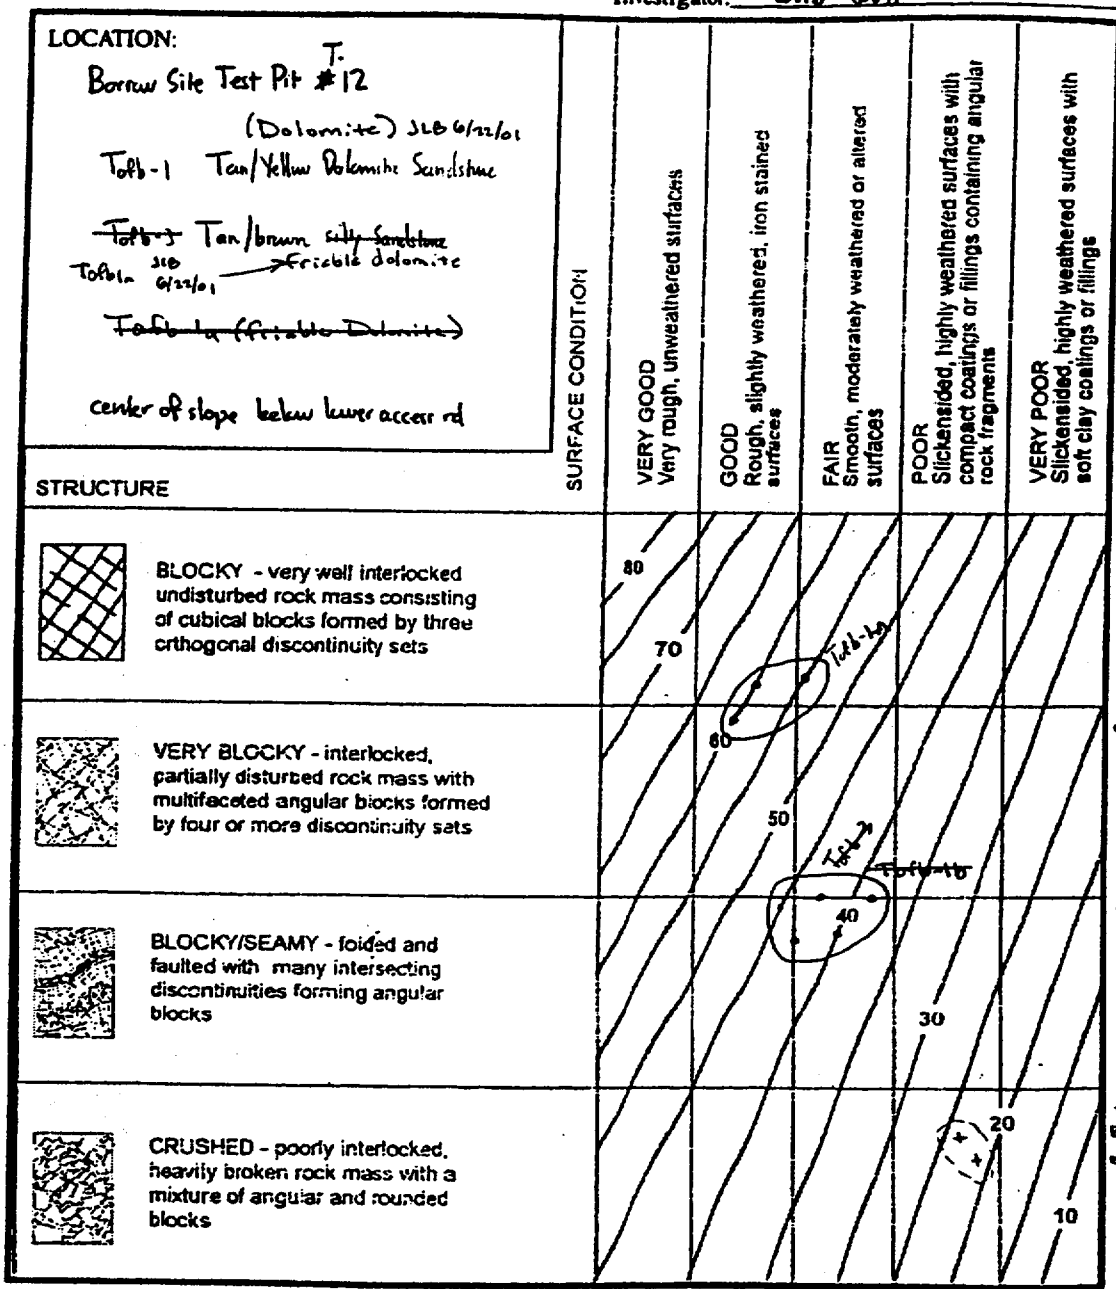 Investigator:
LOCATION:
Borrow Site Test Pit #12
T.
(Dolomite) JLB 6/22/01
Tofb-1 Tan/Yellow Dolomite Sandstone
Tofb-3 Tan/brown silty Sandstone
Tofb1a JLB 6/22/01 friable dolomite
Tofb-1a (friable Dolomite)
center of slope below lower access rd
STRUCTURE
SURFACE CONDITION
VERY GOOD
Very rough, unweathered surfaces
GOOD
Rough, slightly weathered, iron stained
surfaces
FAIR
Smooth, moderately weathered or altered
surfaces
POOR
Slickensided, highly weathered surfaces with
compact coatings or fillings containing angular
rock fragments
VERY POOR
Slickensided, highly weathered surfaces with
soft clay coatings or fillings
BLOCKY - very well interlocked
undisturbed rock mass consisting
of cubical blocks formed by three
orthogonal discontinuity sets
80
70
VERY BLOCKY - interlocked,
partially disturbed rock mass with
multifaceted angular blocks formed
by four or more discontinuity sets
60
50
Tofb-1b
BLOCKY/SEAMY - folded and
faulted with many intersecting
discontinuities forming angular
blocks
40
30
CRUSHED - poorly interlocked,
heavily broken rock mass with a
mixture of angular and rounded
blocks
20
10